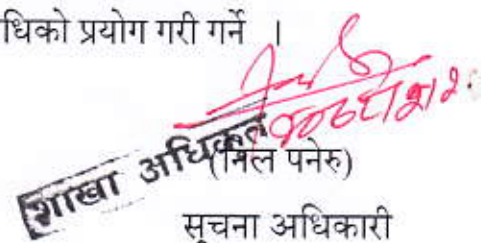 धिको प्रयोग गरी गर्ने ।
शाखा अधिकृत
पनेरु)
सूचना अधिकारी